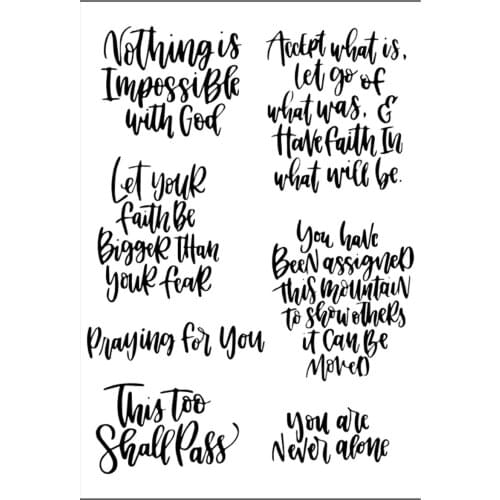 Nothing is
Impossible
with God
Let your
faith Be
Bigger than
your fear
Praying for You
This too
Shall Pass
Accept what is,
let go of
what was, &
Have faith In
what will be.
You have
Been assigned
this mountain
to show others
it Can Be
Moved
You are
Never alone